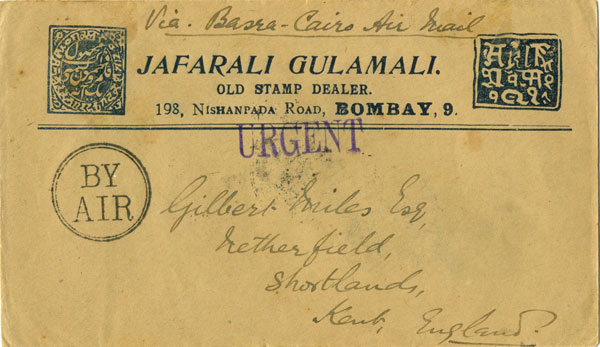 Via. Basra-Cairo Air Mail
JAFARALI GULAMALI.
OLD STAMP DEALER.
198, NISHANPADA ROAD, BOMBAY, 9.
URGENT
BY
AIR
Gilbert Miles Esq,
Netherfield,
Shortlands,
Kent, England.